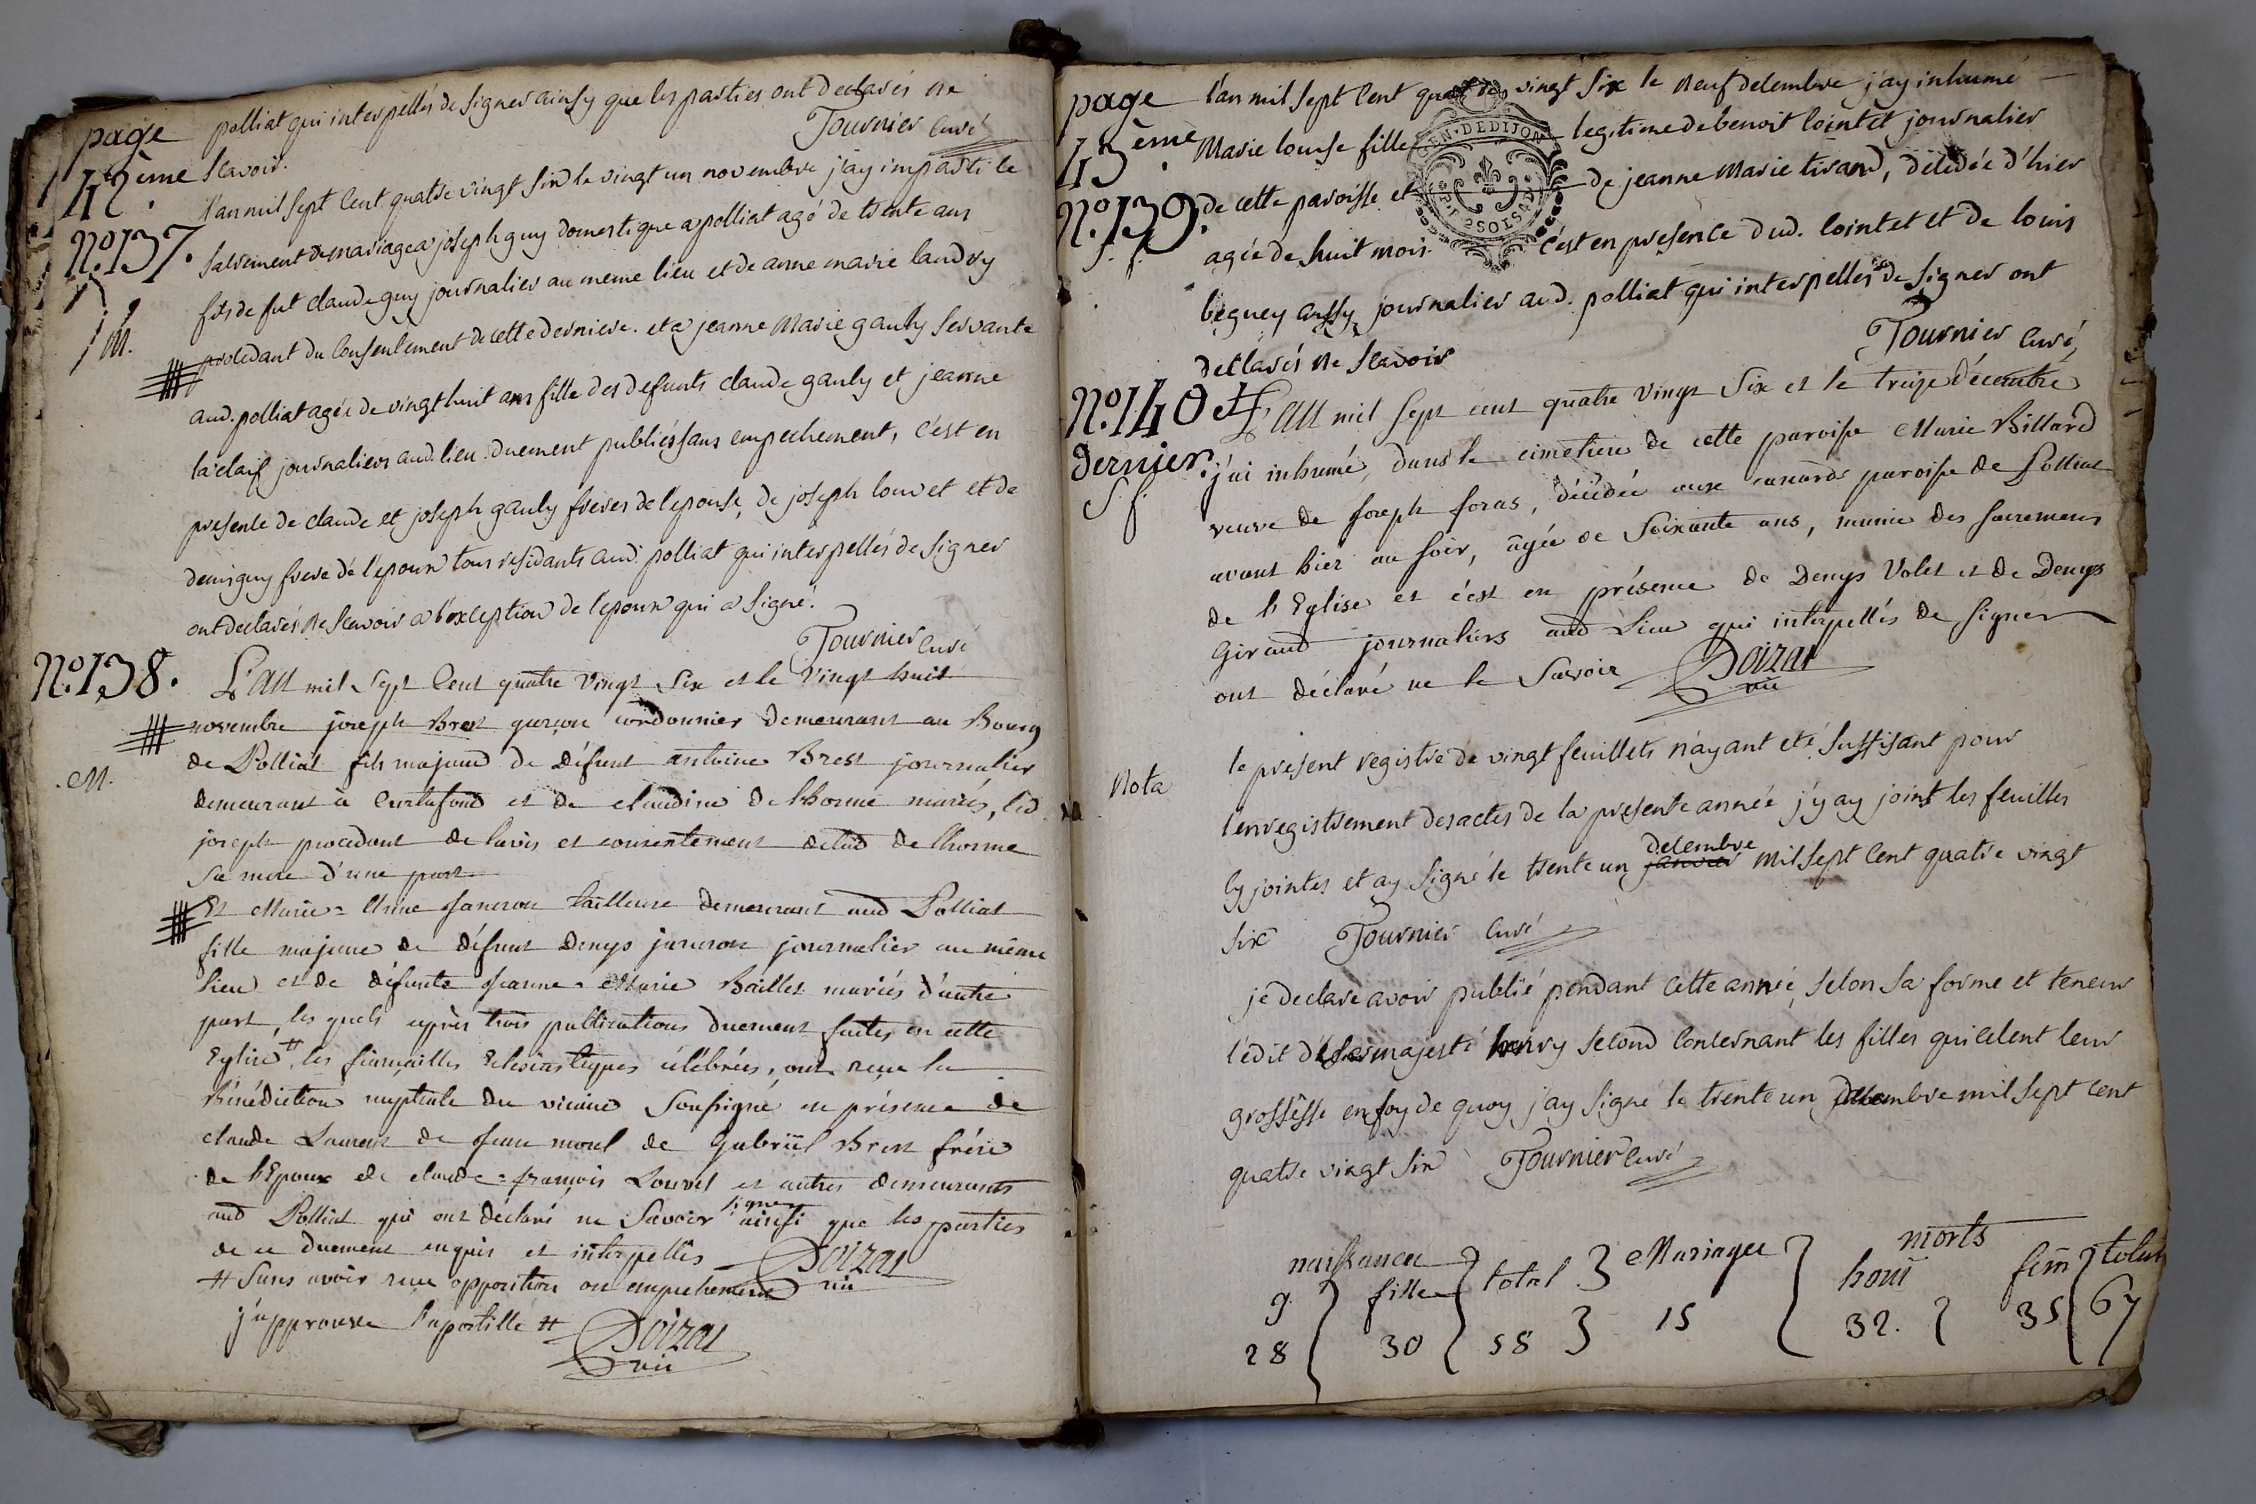 page
42ème
polliat qui interpellés de signer ainsy que les parties ont declarés ne
scavoir. Tournier curé
N.º 137.
M.
l'an mil sept cent quatre vingt six le vingt un novembre j'ay imparti le
sacrement de mariage a joseph guy domestique a polliat agé de trente ans
fils de fut claude guy journalier au meme lieu et de anne marie landry
procedant du consentement de cette derniere. et a jeanne Marie gauly servante
aud. polliat agée de vingt huit ans fille des defunts claude gauly et jeanne
laclaif journaliers aud. lieu. duement publiés sans empechement, c'est en
presence de claude et joseph gauly freres de l'epouse, de joseph louvet et de
denis guy frere de l'epoux tous residants aud. polliat qui interpellés de signer
ont declarés ne scavoir a l'exception de l'epoux qui a signé.
Tournier curé
N.º 138.
M.
L'an mil sept cent quatre vingt six et le vingt huit
novembre joseph Brest garçon cordonnier demeurant au Bourg
de Polliat fils majeur de défunt antoine Brest journalier
demeurant à Curtafond et de claudine de lhorme mariés, led.
joseph procedant de l'avis et consentement de lad. de lhorme
sa mere d'une part
Et Marie = Anne janeron tailleuse demeurant aud Polliat
fille majeure de défunt Denys janeron journalier au même
lieu et de défunte jeanne = Marie Baillet mariés d'autre
part, les quels après trois publications duement faites en cette
Eglise # les fiançailles célébrées, ont reçu la
Bénédiction nuptiale du vicaire soussigné en présence de
claude Laurent de de Gabriel Brest frère
de l'Epoux de claude = françois Louvet et autres demeurants
aud Polliat qui ont déclaré ne Savoir signer ainsi que les parties
de ce duement enquis et interpellés Doizat vic
# sans avoir reçu opposition ou empechement
j'approuve l'apostille #
Doizat vic
page
43ème
N.º 139.
S. f.
l'an mil sept cent quatre vingt six le neuf decembre j'ay inhumé
Marie louise fille legitime de benoit cointet journalier
de cette paroisse et de jeanne Marie tirand, decedée d'hier
GEN. DE DIJON
agée de huit mois. c'est en presence dud. cointet et de louis
beguey aussy journalier aud. polliat qui interpellés de signer ont
declarés ne scavoir Tournier curé
N.º 140 et
Dernier.
S f.
L'an mil sept cent quatre vingt six et le treize décembre
j'ai inhumé, dans le cimetiere de cette paroisse Marie Billard
veuve de joseph foras, décédée aux canards paroisse de Polliat
avant hier au soir, agée de soixante ans, munie des sacremens
de l'Eglise et c'est en présence de Denys Volet et de Denys
Giraud journaliers aud Lieu qui interpellés de signer
ont déclaré ne le Savoir Doizat vic
Nota
le present registre de vingt feuillets n'ayant eté suffisant pour
l'enregistrement des actes de la presente année j'y ay joint les feuilles
cy jointes et ay signé le trente un janvier decembre mil sept cent quatre vingt
six Tournier curé
je declare avoir publié pendant cette année, selon sa forme et teneur
l'edit de sa majesté henry second concernant les filles qui celent leur
grossesse en foy de quoy j'ay signé le trente un decembre mil sept cent
quatre vingt six Tournier curé
naissances
g. fille total Mariages morts hom fem total
28 30 58 15 32. 35 67